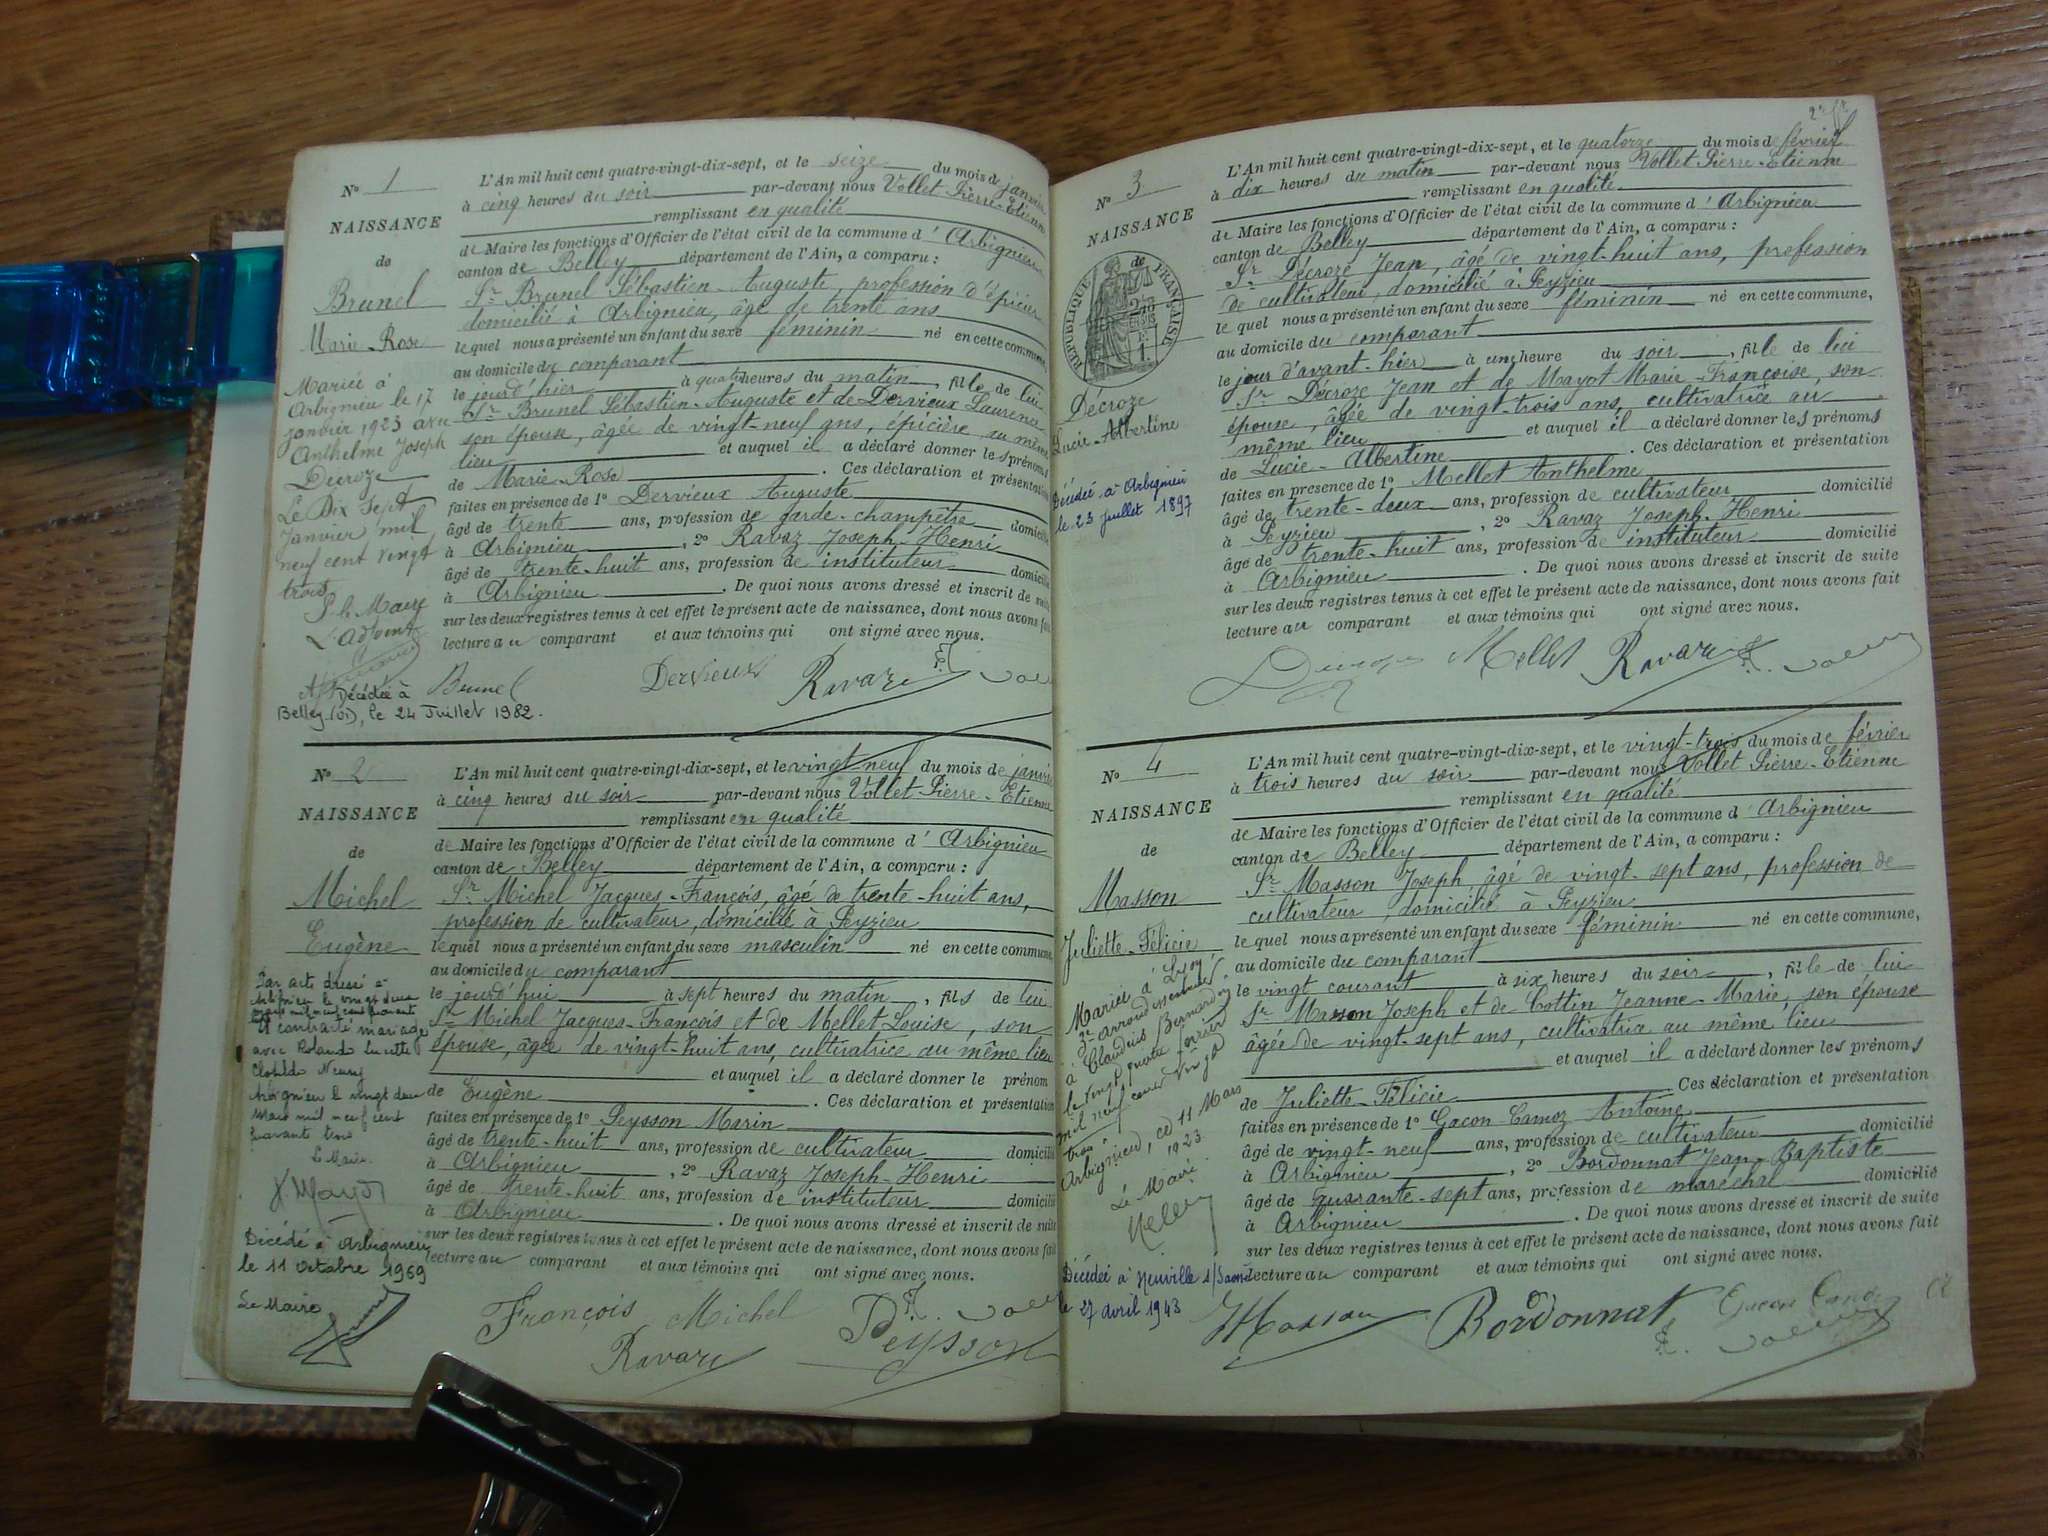 N° 1
NAISSANCE
de
Brunel
Marie-Rose
Mariée à
Arbignieu le 17
janvier 1923 avec
Anthelme Joseph
Décroze
Le Dix Sept
Janvier mil
neuf cent vingt
trois
P. le Maire
L'adjoint
Décédée à
Belley (01), le 24 Juillet 1982.
L'An mil huit cent quatre-vingt-dix-sept, et le seize du mois de janvier
à cinq heures du soir par-devant nous Vollet Pierre-Etienne
remplissant en qualité
de Maire les fonctions d'Officier de l'état civil de la commune d'Arbignieu
canton de Belley département de l'Ain, a comparu :
Sr Brunel Sébastien-Auguste, profession d'épicier
domicilié à Arbignieu, âgé de trente ans
lequel nous a présenté un enfant du sexe féminin né en cette commune,
au domicile du comparant
le jour d'hier à quatre heures du matin, fille de lui
Sr Brunel Sébastien-Auguste et de Dervieux Laurence
son épouse, âgée de vingt-neuf ans, épicière, au même
lieu et auquel il a déclaré donner les prénoms
de Marie-Rose. Ces déclaration et présentation
faites en présence de 1° Dervieux Auguste
âgé de trente ans, profession de garde-champêtre domicilié
à Arbignieu, 2° Ravaz Joseph-Henri
âgé de trente-huit ans, profession de instituteur domicilié
à Arbignieu. De quoi nous avons dressé et inscrit de suite
sur les deux registres tenus à cet effet le présent acte de naissance, dont nous avons fait
lecture au comparant et aux témoins qui ont signé avec nous.
Brunel Dervieux Ravaz
N° 2
NAISSANCE
de
Michel
Eugène
Par acte dressé à
Arbignieu le vingt deux
mars mil neuf cent quarante
a contracté mariage
avec Rolando Lucette
Clotilde
Arbignieu le vingt deux
Mars mil neuf cent
quarante
Le Maire
Mayot
Décédé à Arbignieu
le 11 octobre 1969
Le Maire
L'An mil huit cent quatre-vingt-dix-sept, et le vingt-neuf du mois de janvier
à cinq heures du soir par-devant nous Vollet Pierre-Etienne
remplissant en qualité
de Maire les fonctions d'Officier de l'état civil de la commune d'Arbignieu
canton de Belley département de l'Ain, a comparu :
Sr Michel Jacques-François, âgé de trente-huit ans,
profession de cultivateur, domicilié à Peyzieu
lequel nous a présenté un enfant du sexe masculin né en cette commune,
au domicile du comparant
le jourd'hui à sept heures du matin, fils de lui
Sr Michel Jacques-François et de Mellet Louise, son
épouse, âgée de vingt-huit ans, cultivatrice au même lieu
et auquel il a déclaré donner le prénom
de Eugène. Ces déclaration et présentation
faites en présence de 1° Peysson Marin
âgé de trente-huit ans, profession de cultivateur domicilié
à Arbignieu, 2° Ravaz Joseph-Henri
âgé de trente-huit ans, profession de instituteur domicilié
à Arbignieu. De quoi nous avons dressé et inscrit de suite
sur les deux registres tenus à cet effet le présent acte de naissance, dont nous avons fait
lecture au comparant et aux témoins qui ont signé avec nous.
François Michel Peysson
Ravaz
N° 3
NAISSANCE
de
RÉPUBLIQUE FRANÇAISE
Décroze
Lucie-Albertine
Décédée à Arbignieu
le 23 juillet 1897
L'An mil huit cent quatre-vingt-dix-sept, et le quatorze du mois de février
à dix heures du matin par-devant nous Vollet Pierre-Etienne
remplissant en qualité
de Maire les fonctions d'Officier de l'état civil de la commune d'Arbignieu
canton de Belley département de l'Ain, a comparu :
Sr Décroze Jean, âgé de vingt-huit ans, profession
de cultivateur, domicilié à Peyzieu
lequel nous a présenté un enfant du sexe féminin né en cette commune,
au domicile du comparant
le jour d'avant-hier à une heure du soir, fille de lui
Sr Décroze Jean et de Mayot Marie-Françoise, son
épouse, âgée de vingt-trois ans, cultivatrice au
même lieu et auquel il a déclaré donner les prénoms
de Lucie-Albertine. Ces déclaration et présentation
faites en présence de 1° Mellet Anthelme
âgé de trente-deux ans, profession de cultivateur domicilié
à Peyzieu, 2° Ravaz Joseph-Henri
âgé de trente-huit ans, profession de instituteur domicilié
à Arbignieu. De quoi nous avons dressé et inscrit de suite
sur les deux registres tenus à cet effet le présent acte de naissance, dont nous avons fait
lecture au comparant et aux témoins qui ont signé avec nous.
Mellet Ravaz
N° 4
NAISSANCE
de
Masson
Juliette-Félicie
Mariée à Lyon
arrondissement
à Claudius Bernardin
le vingt quatre février
mil neuf cent vingt
trois
Arbignieu, ce 11 Mars
1923
Le Maire
Décédée à Neuville s/Saône
le 27 avril 1943
L'An mil huit cent quatre-vingt-dix-sept, et le vingt-trois du mois de février
à trois heures du soir par-devant nous Vollet Pierre-Etienne
remplissant en qualité
de Maire les fonctions d'Officier de l'état civil de la commune d'Arbignieu
canton de Belley département de l'Ain, a comparu :
Sr Masson Joseph âgé de vingt-sept ans, profession de
cultivateur, domicilié à Peyzieu
lequel nous a présenté un enfant du sexe féminin né en cette commune,
au domicile du comparant
le vingt courant à six heures du soir, fille de lui
Sr Masson Joseph et de Cottin Jeanne-Marie, son épouse
âgée de vingt-sept ans, cultivatrice au même lieu
et auquel il a déclaré donner les prénoms
de Juliette-Félicie. Ces déclaration et présentation
faites en présence de 1° Gacon-Camoz Antoine
âgé de vingt-neuf ans, profession de cultivateur domicilié
à Arbignieu, 2° Bordonnat Jean-Baptiste
âgé de quarante-sept ans, profession de maréchal domicilié
à Arbignieu. De quoi nous avons dressé et inscrit de suite
sur les deux registres tenus à cet effet le présent acte de naissance, dont nous avons fait
lecture au comparant et aux témoins qui ont signé avec nous.
Masson Bordonnat Gacon